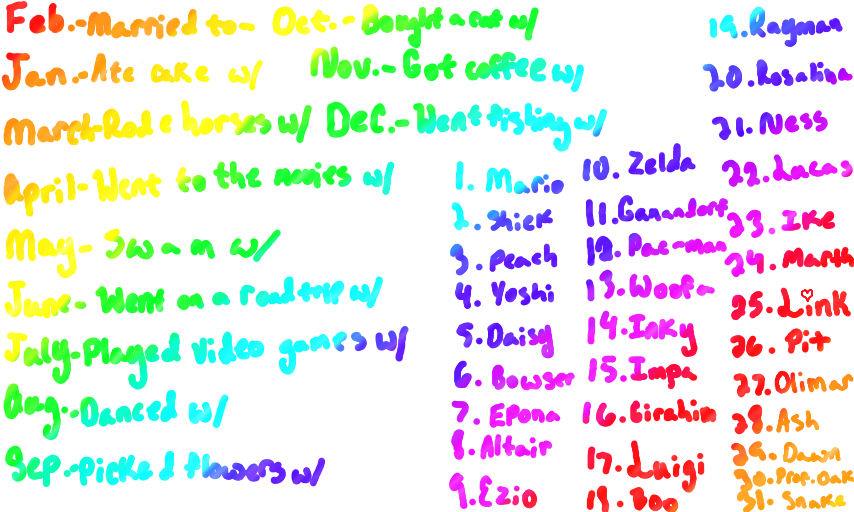 Feb.-Married to-
Jan.-Ate cake w/
March-Rode horses w/
April-Went to the movies w/
May-Swam w/
June-Went on a roadtrip w/
July-Played video games w/
Aug.-Danced w/
Sep.-Picked flowers w/
Oct.-Bought a cat w/
Nov.-Got coffee w/
Dec.-Went fishing w/
1. Mario
2. Shiek
3. Peach
4. Yoshi
5. Daisy
6. Bowser
7. Epona
8. Altair
9. Ezio
10. Zelda
11. Ganandorf
12. Pac-man
13. Woofa
14. Inky
15. Impa
16. Girahim
17. Luigi
18. Boo
19. Rayman
20. Rosalina
21. Ness
22. Lucas
23. Ike
24. Marth
25. Link
26. Pit
27. Olimar
28. Ash
29. Dawn
30. Prof. Oak
31. Snake